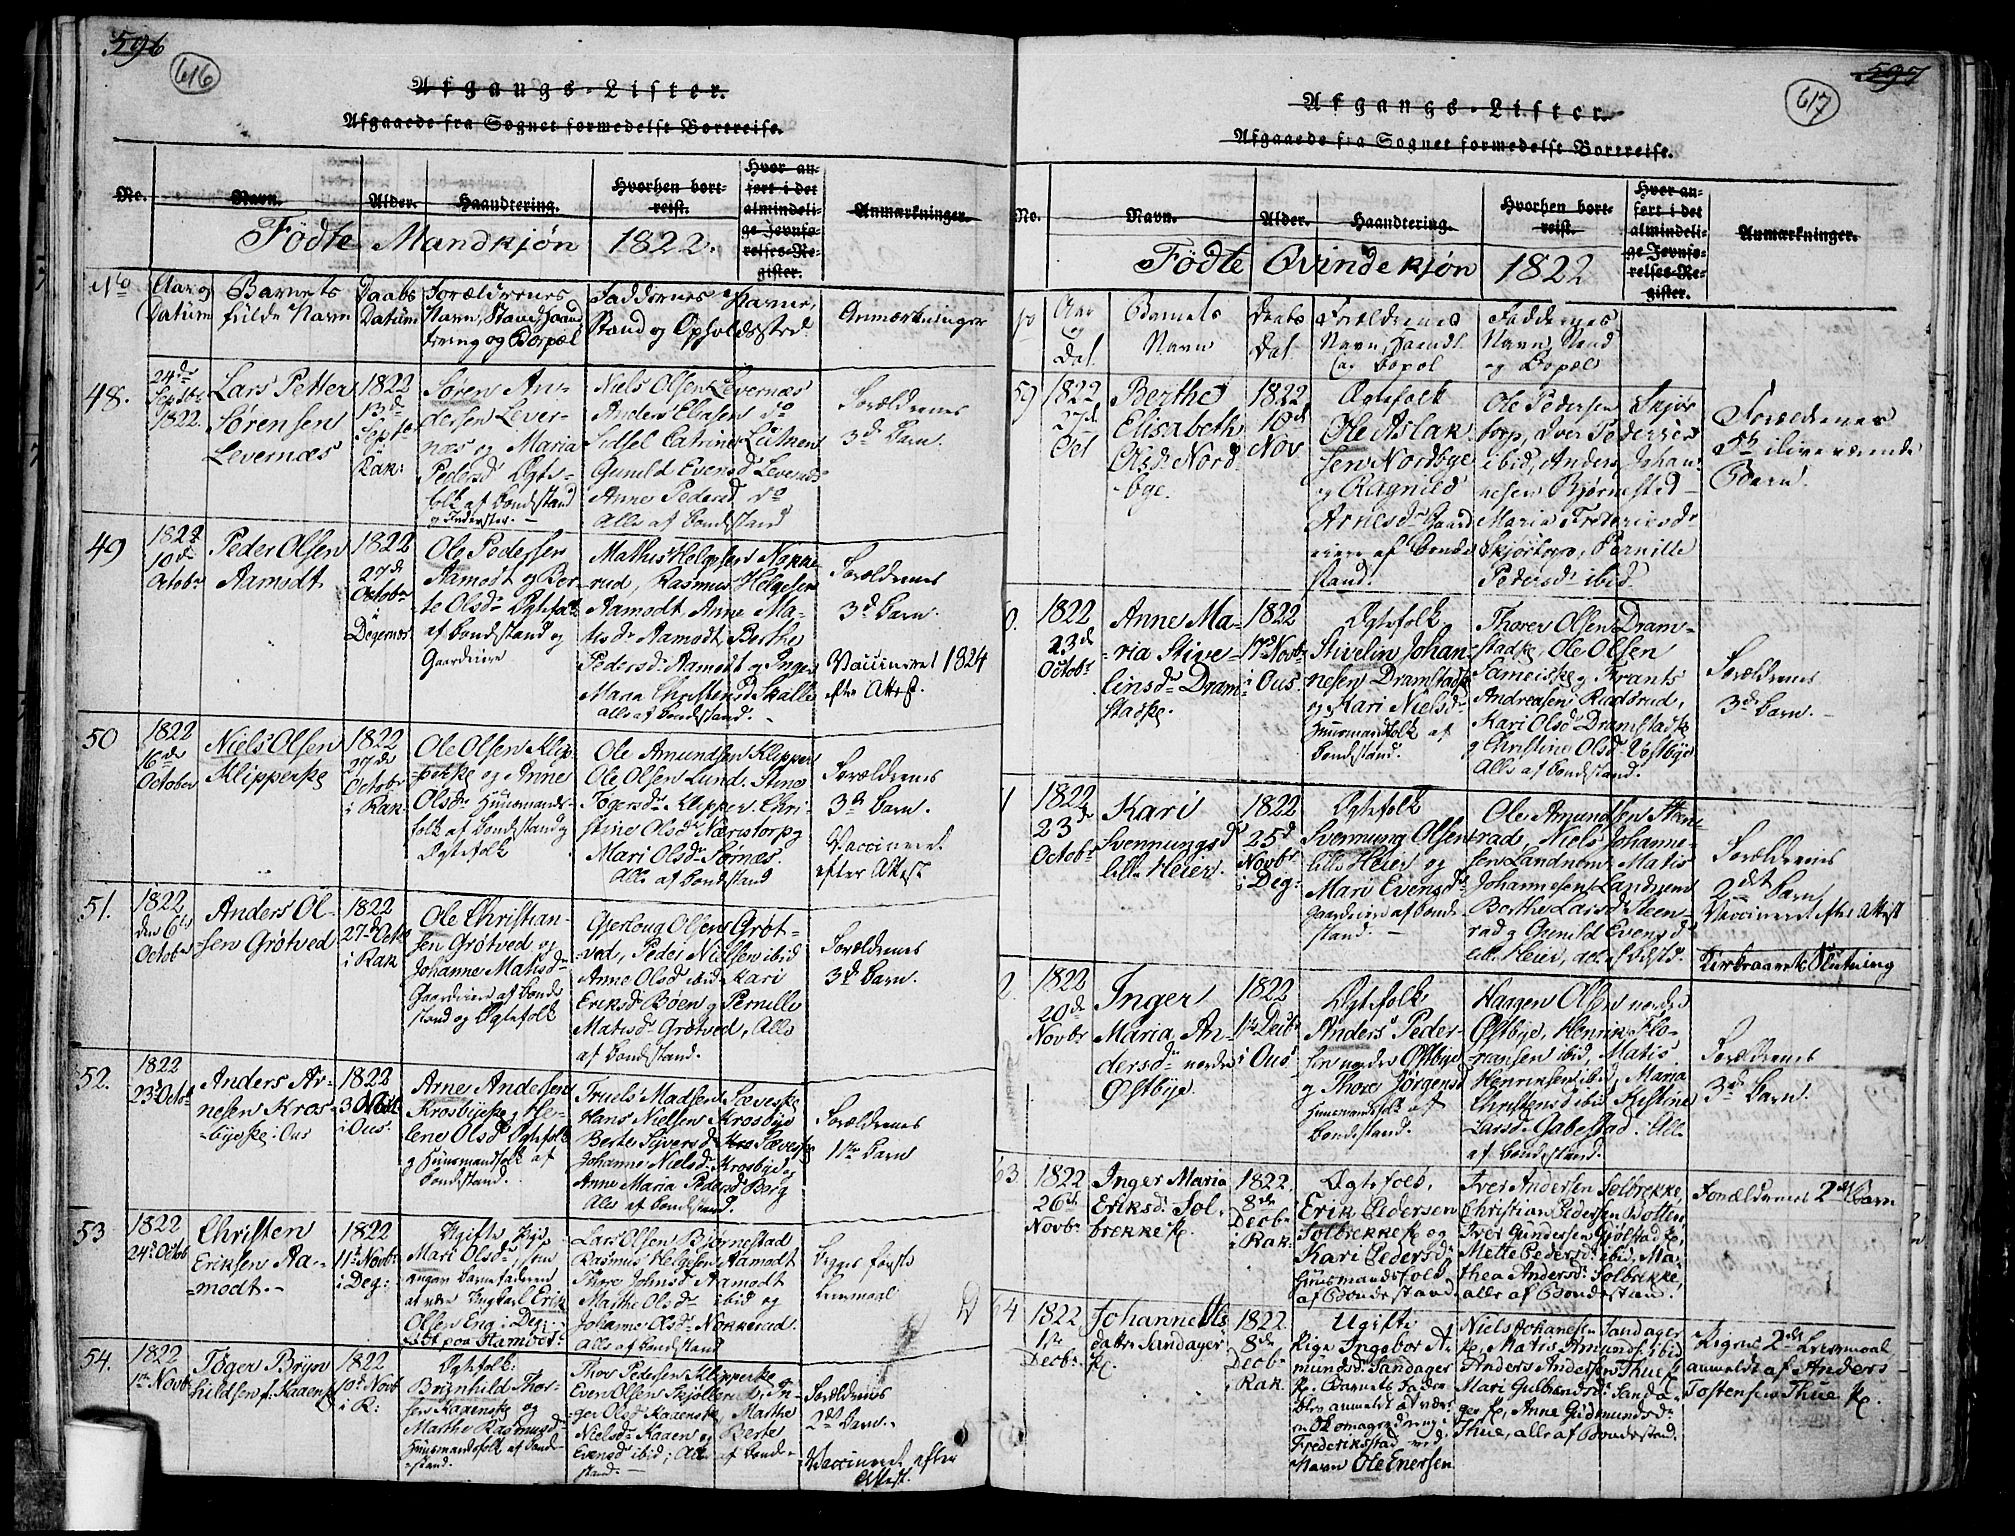 596
616
Afgangs-Lister.
Afgaaede fra Sognet formedelst Bortreise.
No.
Navn.
Alder.
Haandtering.
Hvorhen bort-
reist.
Hvor an-
ført i det
almindeli-
ge Jevnfø-
relses-Re-
gister.
Anmærkninger.
Fødte Mandkjøn 1822.
No
Aar og
Datum
Barnets
fulde Navn
Daabs
Datum
Forældrenes
Navn, Stand, Haand
tering og Bopæl
Faddernes Navne,
Stand og Opholdssted.
Anmærkninger
48.
24de
Septbr
1822.
Lars Petter
Sørensen
Levernæs
1822
13de
Rak:
Søren An-
dersen Lever-
næs og Maria
Pedersd Ægte-
folk af Bondestand
og Inderster. -
Niels Olsen Levernæs
Anders Eliasen do
Sidsel Catrine Lütken
Gunild Evensd Levernæs
Anne Pedersd. do
Alle af Bondestand
Forældrenes
3de Barn.
49
1822
10de
Octobr
Peder Olsen
Aamodt
1822
27de
Octobr
Degernæs
Ole Pedersen
Aamodt og Ber-
te Olsdr Ægtefolk
af Bondestand og
Gaardeiere
Mathis Helgesen Nokke-
rud, Rasmus Helgesen
Aamodt, Anne Ma-
tisdr Aamodt, Berthe
Pedersd. Aamodt og Inger
Maria Christensd Skolle
alle af Bondestand. -
Forældrenes
3de Barn.
Vaccineret 1824
efter Attest.
50
1822
16de
October
Niels Olsen
Klipperpe
1822
27de
Octobr
i Rak:
Ole Olsen Klip-
og Anne
Olsdr Huusmands-
folk af Bondestand og
Ægtefolk
Ole Amundsen Klipper
Ole Olsen Lund. Anne
Tøgersdr Klipper. Chri-
stine Olsdr Næristorp og
Mari Olsdr Sørnæs.
Alle af Bondestand
Forældrenes
3de Barn.
Vaccineret
efter Attest
51.
1822
den 6te
Octobr
Anders Ol-
sen Grøtved
1822
27de Octb
i Rak
Ole Christian-
sen Grøtved og
Johanne Matisdr
Gaardeiere af Bonde
stand og Ægtefolk
Gjerloug Olsen Grøt-
ved, Peder Nielsen ibid
Anne Olsd ibid Kari
Eriksd. Bøen og Pernille
Matisdr Grøtved, Alle
af Bondestand.
Forældrenes
3de Barn.
52.
1822
23de Octb
Anders Ar-
nesen Kros-
i Ous
1822
3 Novbr
i Ous.
Arne Andersen
og He-
lene Olsdr Ægtefolk
og Huusmandsfolk af
Bondestand.
Truels Madsen
Hans Nielsen Krosbye
Berte Syversd.
Johanne Nielsdr Krosbye og
Anne Maria Pedersd Berg
Alle af Bondestand.
Forældrenes
1ste Barn
53
1822
24de Octob
Christen
Eriksen Aa-
modt. -
1822
11te Novbr
i Deg:
Ugifte Pige
Mari Olsdr, som
angav Barnefaderen
at være Ungkarl Erik
Olsen Eng i Deg:
Lars Olsen Bjørnestad
Rasmus Helgesen Aamodt
Thore Johnsd Aamodt
Marthe Olsdr ibid og
Johanne Olsdr Nokkerud.
Alle af Bondestand
Begges første
Leiermaal
54.
1822
1te Novbr
Tøger Bryn-
hildsen
1822
10de Novb
i R:
Ægtefolk
Brynhild Thor-
sen Kaaenske og
Marthe Rasmusdr
Huusmandsfolk af Bonde-
stand.
Thor Pedersen
Even Olsen Skjøllerud, In-
ger Olsd. Marthe
Nielsdr Kaaen og Berte
Evensd ibid; Alle af Bonde-
stand. -
Forældrenes
2det Barn.
Vaccineret efter
Attest.
597
617
Afgangs-Lister.
Afgaaede fra Sognet formedelst Bortreise.
No.
Navn.
Alder.
Haandtering.
Hvorhen bort-
reist.
Hvor an-
ført i det
almindeli-
ge Jevnfø-
relses-Re-
gister.
Anmærkninger.
Fødte Qvindekjøn 1822
Aar
og
Dat.
Barnets
Navn
Daabs
Dat.
Forældrenes
Navn, Haandt.
og Bopæl
Faddernes
Navn, Stand
og Bopæl
59
1822
27de
Oct
Berthe
Elisabeth
Olsdr Nord
bye.
1822
10de
Nov
Ægtefolk
Ole Aslak-
sen Nordbye
og Ragnild
Arnesdr Gaard
eiere af Bonde
stand.
Ole Pedersen Skjør
torp, Iver Pedersen
ibid, Anders Johan-
nesen Bjørnested
Maria Frederiksdr
Skjørtorp, Pernille
Pedersdr ibid
Forældrenes
5te ilivevæerende
Barn.
0.
1822
23de
Octobr
Anne Ma-
ria Stive-
linsdr Dram-
stadpe.
1822
17de Novbr
i Ous
Ægtefolk
Stivelin Johan-
nesen Dramstadpe
og Kari Nielsdr
Huusmandfolk af
Bondestand.
Thorer Olsen Dram-
stadpe, Ole Olsen
og Frants
Andreasen Rudsrud,
Kari Olsdr Dramstadpe
og Christine Olsd. Østbye
Alle af Bondestand.
Forældrenes
3de Barn. -
1
1822
23de
Octobr
Kari
Svennungsd
lille Heier.
1822
25de
Novbr
i Deg:
Ægtefolk
Svennung Olsen
lille Heier og
Mari Evensdr
Gaardeiere af Bonde
stand. -
Ole Amundsen Sten-
rad, Niels Johanne-
sen Landnem. Matis
Johannesen Landnem
Berthe Larsdr Steen-
rad og Gunild Evensd
lille Heier, alle af Bostd.
Forældrenes
2det Barn
Vaccineret efter Attest
Kirkeaarets Slutning
2.
1822
20de
Novbr
Inger
Maria An-
dersdr nordre
Østbye.
1822
1te Decbr
i Ous
Ægtefolk
Anders Peder-
sen nordre Østbye
og Thore Jørgensd
Huusmandsfolk af
Bondestand.
Haagen Olsen nordre
Østbye, Henrik Flo-
riansen ibid, Matis
Henriksen ibid, Maria
Christensd ibid, Kistine
Larsdr Gabestad. Alle
af Bondestand.
Forældrenes
3de Barn.
63.
1822
26de
Novbr
Inger Maria
Eriksdr Sol-
brekke
1822.
8de
Decbr
i Rak:
Ægtefolk,
Erik Pedersen
Solbrekke og
Kari Pedersdr
Huusmandsfolk
af Bondestand,
Iver Andersen Solbrekke,
Christian Pedersen Botten,
Iver Gundersen Gjølstad
Mette Pedersdr ibid, Ma-
thea Andersdr Solbrekke,
alle af Bondestand.
Forældrenes 2det Barn
64
1822.
1te
Decbr.
Johanne Ols
datter Sandager
1822.
8de
Decbr
Rak.
Ugifte
Pige Ingebor A-
mundsdr Sandager
Barnets Fader
blev anmeldt at være
en Skomagerdreng i
Frederikstad ved
Navn Ole Enersen
Niels Johanesen Sandager
Matis Amundsen ibid
Anders Andersen Thue
Mari Gulbrandsdr Sanda-
ger Anne Gudmundsdr
Thue, alle af Bondestand.
Pigens 2det Leiermaal
anmeldt af Anders
Tostensen Thue